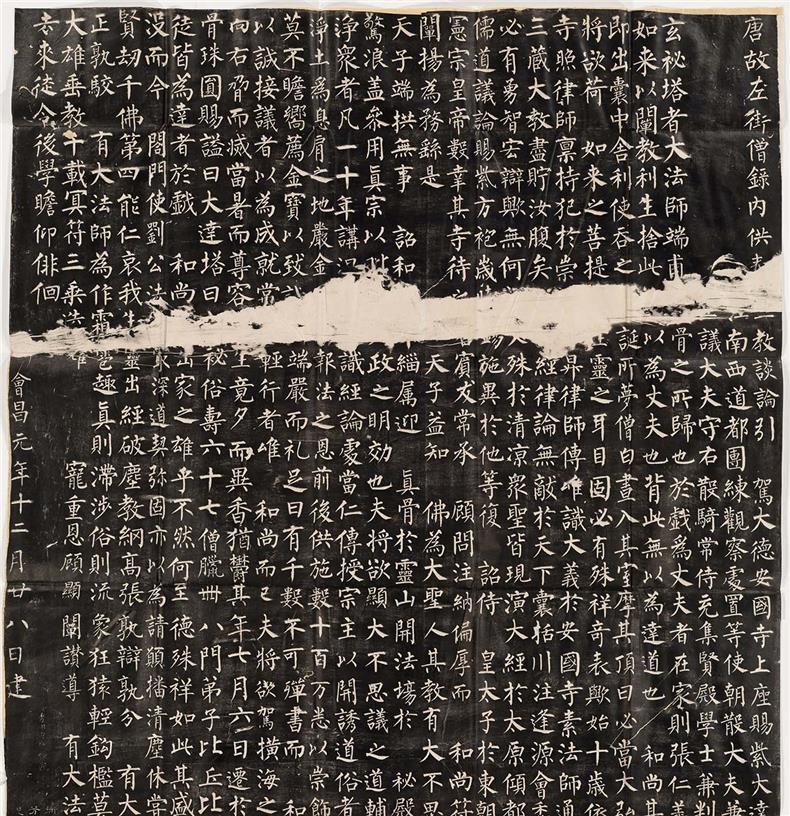 唐故左街僧錄內供
教談論引 駕大德安國寺上座賜紫大達
南西道都團練觀察處置等使朝散大夫兼
議大夫守右散騎常侍充集賢殿學士兼判
玄秘塔者大法師端甫
骨之所歸也於戲為丈夫者在家則張仁義
如来以闡教利生捨此
以為丈夫也背此無以為達道也 和尚其
即出囊中舍利使吞之
誕所夢僧白晝入其室摩其頂曰必當大弘
將欲荷 如来之菩提
靈之耳目固必有殊祥竒表歟始十歳依
寺照律師稟持犯於崇
昇律師傳唯識大義於安國寺素法師通
三藏大教盡貯汝腹矣
經律論無敵於天下囊括川注逢源會委
必有勇智宏辯歟無何
殊於清凉衆聖皆現演大經於太原傾都
儒道議論賜紫方袍歳
施異於他等復 詔侍 皇太子於東朝
憲宗皇帝數幸其寺待
賓友常承 顧問注納偏厚而 和尚符
闡揚為務繇是
天子益知 佛為大聖人其教有大不思
天子端拱無事 詔和
緇属迎 真骨於靈山開法場於 秘殿
驚浪盖叅用真宗以
政之明効也夫將欲顯大不思議之道輔
浄衆者凡一十年講
識經論處當仁傳授宗主以開誘道俗者
浄土為息肩之地嚴金
報法之恩前後供施數十百万悉以崇飾
莫不瞻嚮薦金寶以致
端嚴而礼足曰有千數不可殫書而 和
以誠接議者以為成就常
輕行者唯 和尚而已夫將欲駕横海之
向右脅而滅當暑而尊容
生竟夕而異香猶鬱其年七月六日遷於
骨珠圓賜謚曰大達塔曰
秘俗壽六十七僧臘卌八門弟子比丘比
徒皆為達者於戲 和尚
出家之雄乎不然何至德殊祥如此其盛
没而今 閤門使劉公法
深道契弥固亦以為請願播清塵休甞
賢劫千佛第四能仁哀我生
靈出經破塵教網高張孰辯孰分 有大
正孰駮 有大法師為作霜
趣真則滞涉俗則流象狂猿輕鈎檻莫
大雄垂教千載冥符三乗
寵重恩顧顯闡讚導 有大法
去来徒令後學瞻仰俳佪
會昌元年十二月廿八日建